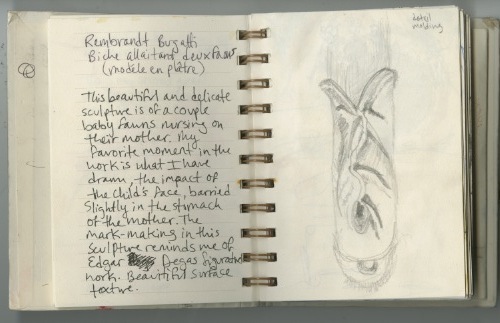 Rembrandt Bugatti
Biche allaitant deux faons
(modele en plâtre)
This beautiful and delicate
sculpture is of a couple
baby fawns nursing on
their mother. My
favorite moment in the
work is what I have
drawn, the impact of
the child's face, barried
slightly in the stomach
of the mother. The
mark-making in this
sculpture reminds me of
Edgar Degas figurative
work. Beautiful surface
texture.
detail
molding